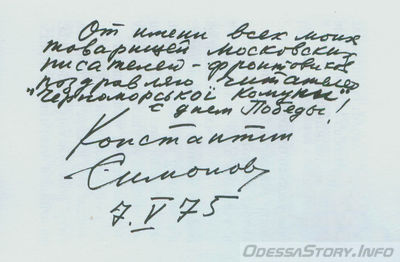 От имени всех моих
товарищей московских
писателей-фронтовиков
поздравляю читателей
"Чорноморської Комуни"
с днем Победы!
Константин
Симонов
7.V 75
OdessaStory.Info